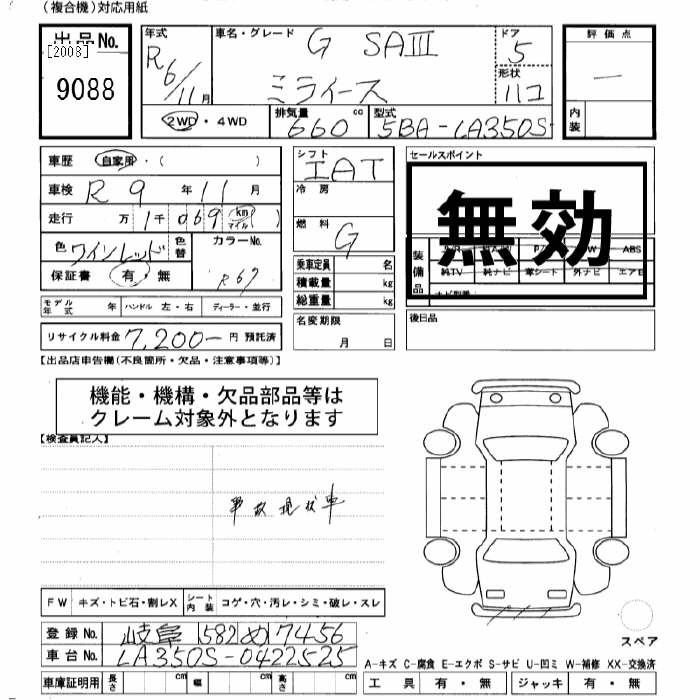 （複合機）対応用紙
出品No.
[2008]
9088
年式
R6/11月
車名・グレード
G SAIII
ミライース
ドア
5
形状
ハコ
評価点
―
内装
2WD・4WD
排気量
660 cc
型式
5BA-LA350S
車歴 自家用・（ ）
車検 R9年11月
走行 万1千069 km マイル
色 ワインレッド 色替
カラーNo.
R67
保証書 有・無
モデル年式 年 ハンドル 左・右 ディーラー・並行
リサイクル料金 7,200- 円 預託済
シフト
IAT
冷房
燃料
G
乗車定員 名
積載量 kg
総重量 kg
名変期限
月 日
セールスポイント
無効
装備品
ABS
純TV 純ナビ 革シート 外ナビ エアB
後日品
【出品店申告欄（不良箇所・欠品・注意事項等）】
機能・機構・欠品部品等は
クレーム対象外となります
【検査員記入】
事故現状車
FW キズ・トビ石・割レX シート内装 コゲ・穴・汚レ・シミ・破レ・スレ
登録No. 岐阜 582 め 7456
車台No. LA350S-0422525
車庫証明用 長さ cm 幅 cm 高さ cm
スペア
A-キズ C-腐食 E-エクボ S-サビ U-凹ミ W-補修 XX-交換済
工具 有・無 ジャッキ 有・無